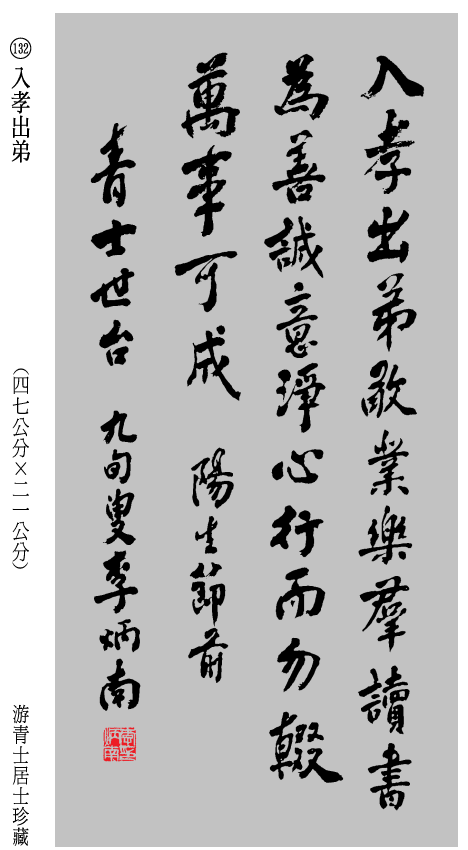 入孝出弟敬業樂羣讀書
為善誠意淨心行而勿輟
萬事可成 陽生節前
青士世台 九旬叟李炳南
132 入孝出弟
（四七公分×二一公分）
游青士居士珍藏